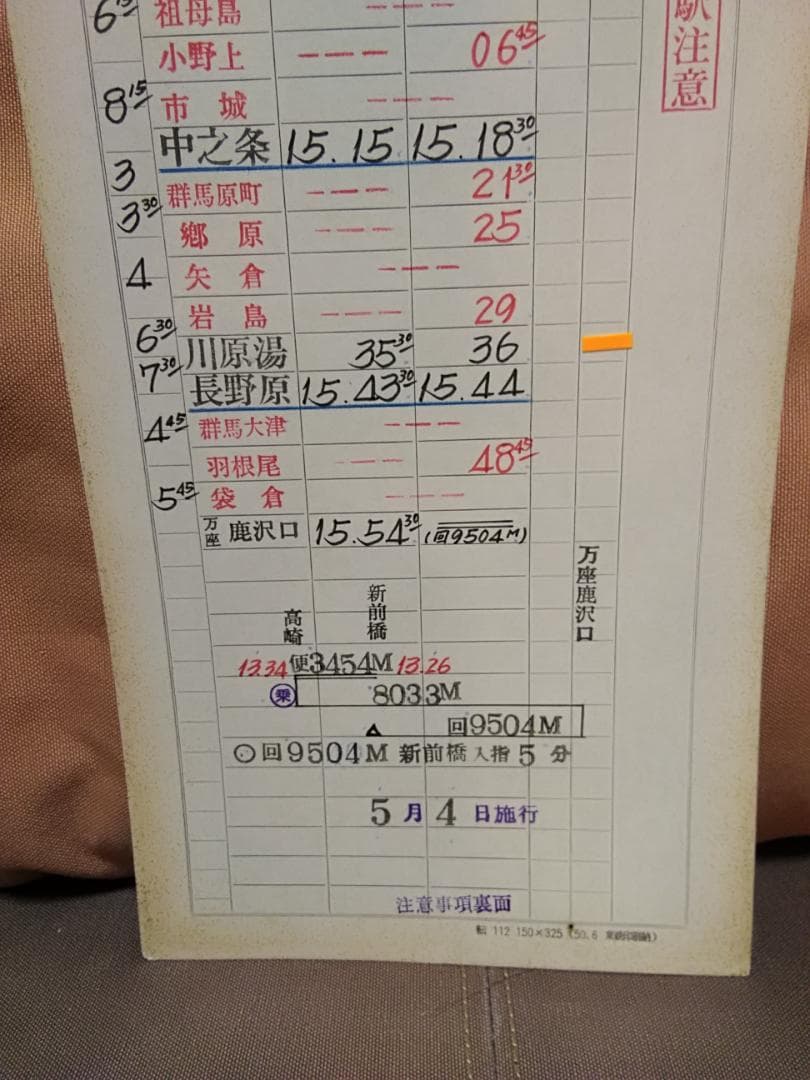 6 15 祖母島 ———
小野上 ——— 06 45
駅注意
8 15 市城 ———
中之条 15.15 15.18 30
3 群馬原町 ——— 21 30
3 30 郷原 ——— 25
4 矢倉 ———
岩島 ——— 29
6 30 川原湯 35 30 36
7 30 長野原 15.43 30 15.44
4 45 群馬大津 ———
羽根尾 ——— 48 45
5 45 袋倉 ———
万座鹿沢口 15.54 30 (回9504M)
高崎 新前橋 万座鹿沢口
13.34 便3454M 13.26
乗 8033M
回9504M
○回9504M 新前橋入指5分
5月4日施行
注意事項裏面
転 112 150×325 (50.6